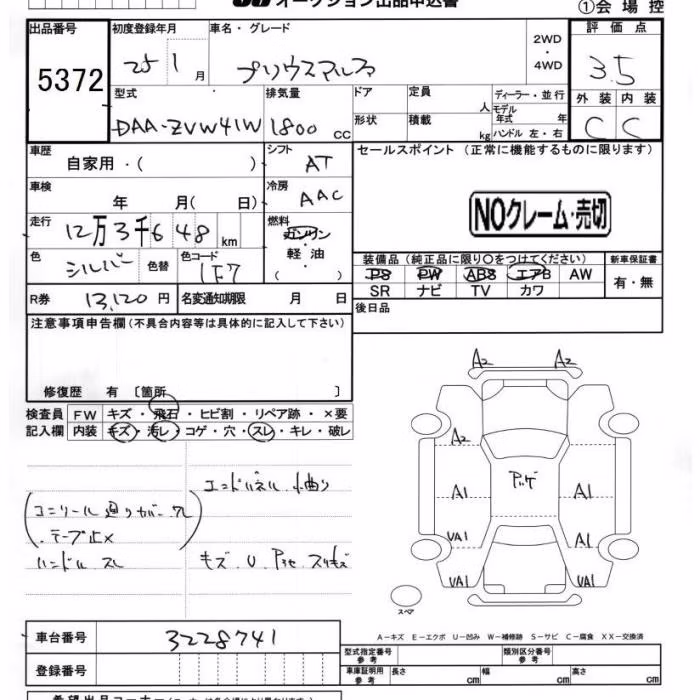 オークション出品申込書
①会場控
出品番号 初度登録年月 車名・グレード 評価点
5372 25 1 月 プリウスアルファ 2WD・4WD 3.5
外装 内装
C C
型式 排気量 ドア 定員 人 ディーラー・並行
DAA-ZVW41W 1800 cc 形状 積載 kg モデル年式 年
ハンドル 左・右
車歴 自家用・( ) シフト AT セールスポイント (正常に機能するものに限ります)
車検 年 月( 日) 冷房 AAC
NOクレーム・売切
走行 12万3千648 km 燃料 ガソリン 軽油 ( )
色 シルバー 色替 色コード 1F7
装備品 (純正品に限り○をつけてください) 新車保証書
PS PW ABS エアB AW 有・無
SR ナビ TV カワ
R券 13,120 円 名変通知期限 月 日
後日品
注意事項申告欄 (不具合内容等は具体的に記入して下さい)
修復歴 有 〔箇所 〕
検査員 FW キズ・飛石・ヒビ割・リペア跡・×要
記入欄 内装 キズ・汚レ・コゲ・穴・スレ・キレ・破レ
エンドパネル 小曲り
テープ止メ
ハンドル スレ
キズ
A2 A2
A2
A1 A1
UA1 A1
UA1 UA1
スペア
A−キズ E−エクボ U−凹み W−補修跡 S−サビ C−腐食 XX−交換済
車台番号 3228741
登録番号
型式指定番号 参考 類別区分番号 参考
車庫証明用 参考 長さ cm 幅 cm 高さ cm